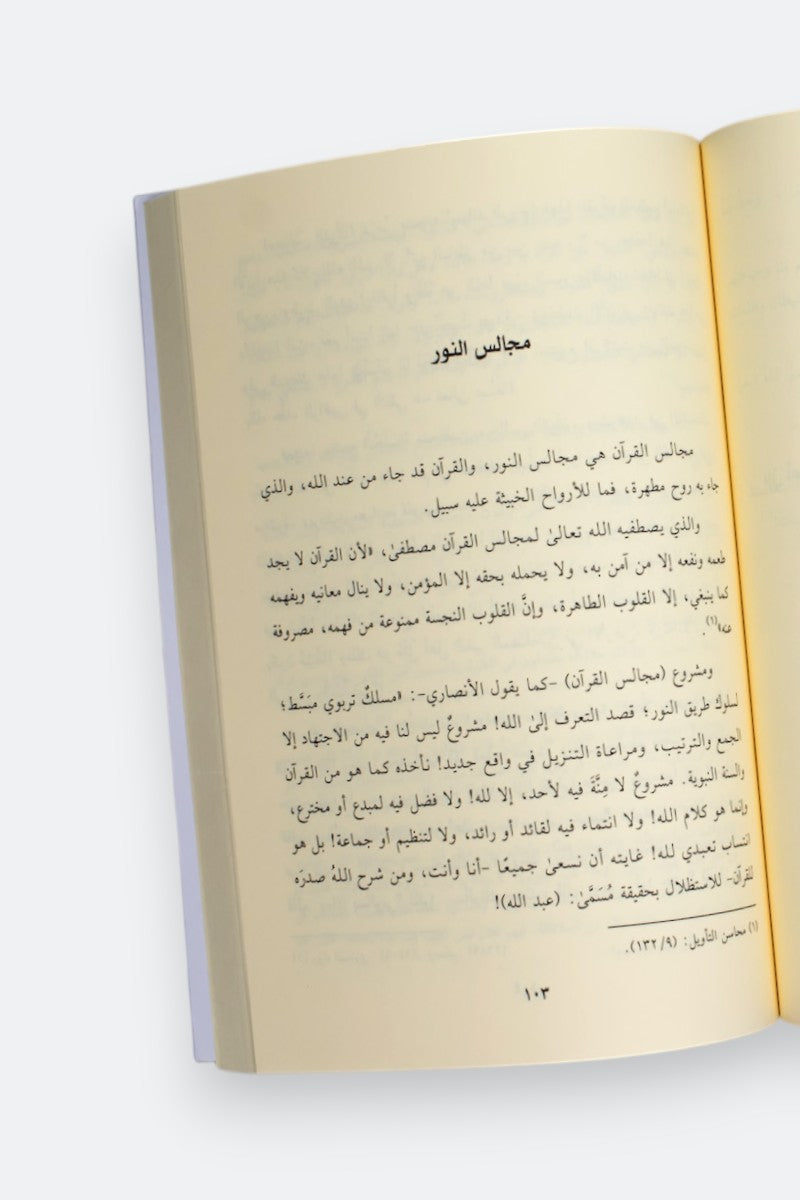 مجالس النور
مجالس القرآن هي مجالس النور، والقرآن قد جاء من عند الله، والذي
جاء به روح مطهرة، فما للأرواح الخبيثة عليه سبيل.
والذي يصطفيه الله تعالىٰ لمجالس القرآن مصطفىٰ، «لأن القرآن لا يجد
طعمه ونفعه إلا من آمن به، ولا يحمله بحقه إلا المؤمن، ولا ينال معانيه ويفهمه
كما ينبغي، إلا القلوب الطاهرة، وإنَّ القلوب النجسة ممنوعة من فهمه، مصروفة
عنه»(١).
ومشروع (مجالس القرآن) -كما يقول الأنصاري-: «مسلكٌ تربوي مبَسَّط؛
لسلوك طريق النور؛ قصد التعرف إلىٰ الله! مشروعٌ ليس لنا فيه من الاجتهاد إلا
الجمع والترتيب، ومراعاة التنزيل في واقع جديد! نأخذه كما هو من القرآن
والسنة النبوية. مشروعٌ لا مِنَّةَ فيه لأحد، إلا لله! ولا فضل فيه لمبدع أو مخترع،
وإنما هو كلام الله! ولا انتماء فيه لقائد أو رائد، ولا لتنظيم أو جماعة! بل هو
انتساب تعبدي لله! غايته أن نسعىٰ جميعًا -أنا وأنت، ومن شرح اللهُ صدرَه
للقرآن- للاستظلال بحقيقة مُسَمَّىٰ: (عبد الله)!
(١) محاسن التأويل: (٩/ ١٣٢).
١٠٣